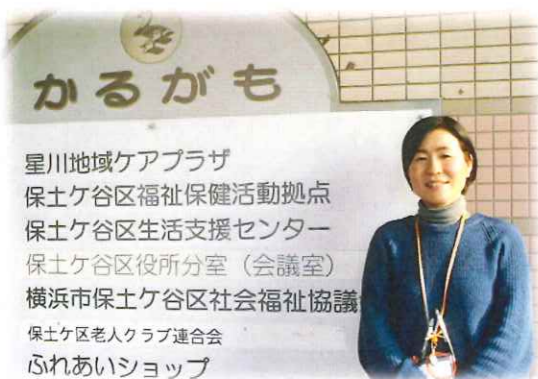 かるがも
星川地域ケアプラザ
保土ケ谷区福祉保健活動拠点
保土ケ谷区生活支援センター
保土ケ谷区役所分室（会議室）
横浜市保土ケ谷区社会福祉協議
保土ケ区老人クラブ連合会
ふれあいショップ